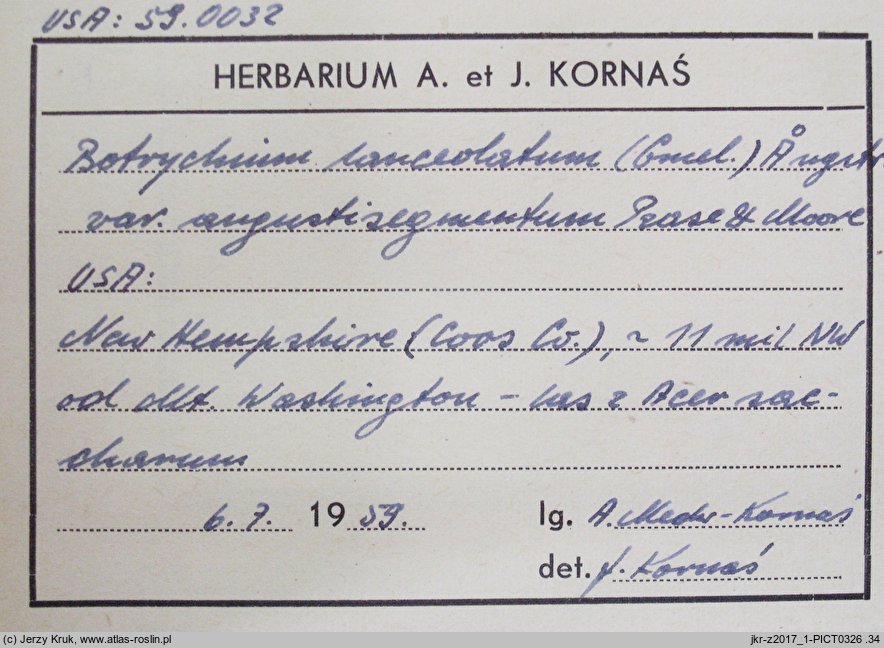 USA: 59.0032
HERBARIUM A. et J. KORNAŚ
Botrychium lanceolatum (Gmel.) Ångstr.
var. angustisegmentum Pease & Moore
USA:
New Hempshire (Coos Co.), ~ 11 mil NW
od Mt. Washington – las z Acer sac-
charum
6. 7. 1959.
lg. A. Medw-Kornaś
det. J. Kornaś
(c) Jerzy Kruk, www.atlas-roslin.pl
jkr-z2017_1-PICT0326 .34